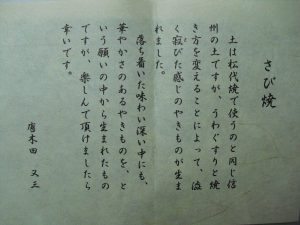 さび焼
土は松代焼で使うのと同じ信
州の土ですが、うわぐすりと焼
き方を変えることによって、渋
く寂びた感じのやきものが生ま
れました。
落ち着いた味わい深い中にも、
華やかさのあるやきものを、と
いう願いの中から生まれたもの
ですが、楽しんで頂けましたら
幸いです。
唐木田 又三